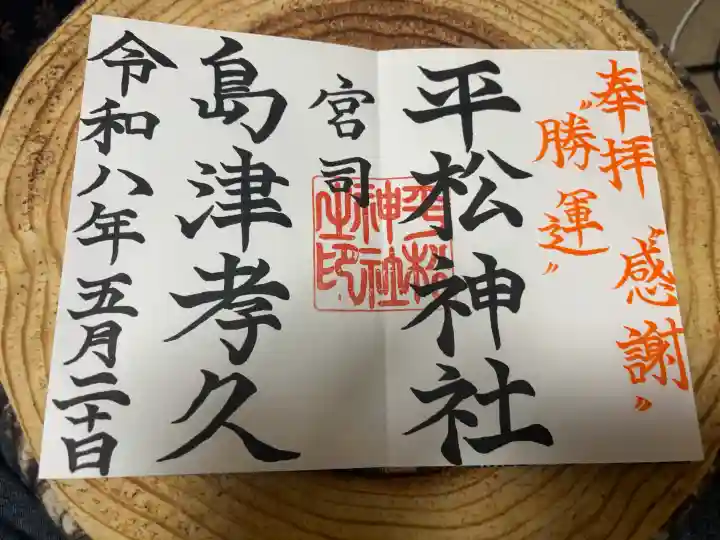 奉拝
"感謝"
"勝運"
平松神社
宮司
島津孝久
令和八年五月二十日
平松
神社
之印